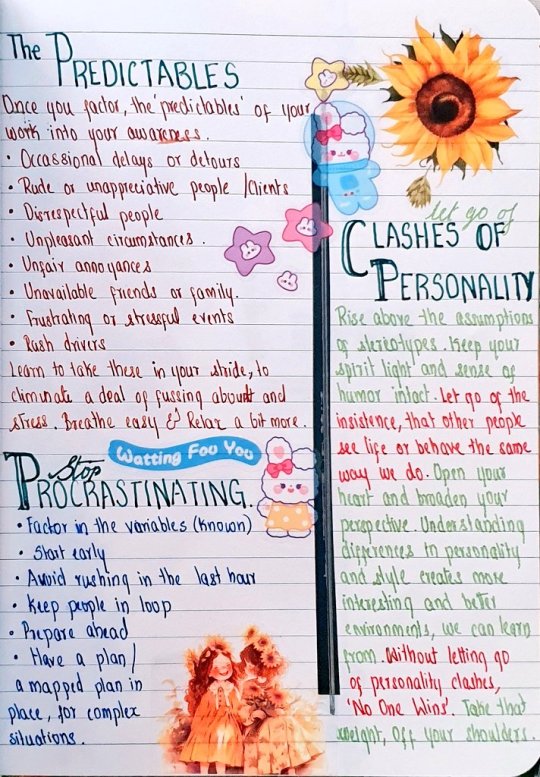 The PREDICTABLES
Once you factor, the 'predictables' of your
work into your awareness.
• Occassional delays or detours
• Rude or unappreciative people /Clients
• Disrespectful people
• Unpleasant circumstances.
• Unfair annoyances
• Unavailable friends or family.
• Frustrating or stressful events
• Rash drivers
Learn to take these in your stride, to
eliminate a deal of fussing about and
stress. Breathe easy & Relax a bit more.
Watting Fou You
Stop
PROCRASTINATING.
• Factor in the variables (known)
• Start early
• Avoid rushing in the last hour
• Keep people in loop
• Prepare ahead
• Have a plan/
a mapped plan in
place, for complex
situations.
let go of
CLASHES OF
PERSONALITY
Rise above the assumptions
of stereotypes. Keep your
spirit light and sense of
humor intact. Let go of the
insistence, that other people
see life or behave the same
way we do. Open your
heart and broaden your
perspective. Understanding
differences in personality
and style creates more
interesting and better
environments, we can learn
from. Without letting go
of personality clashes,
'No One Wins'. Take that
weight, off your shoulders.